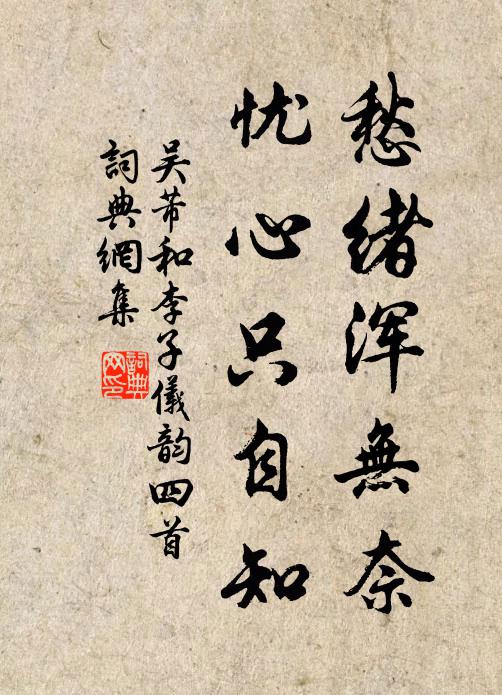 愁绪浑無奈
忧心只自知
吴芾和李子儀韵四首
詞典網集
詞典网印